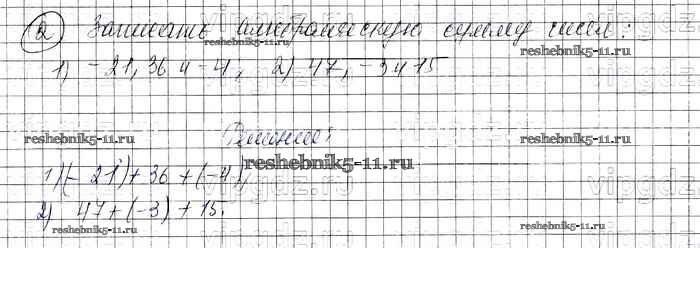 2 Записать алгебраическую сумму чисел:
1) -21, 36 и -4; 2) 47, -3 и 15
reshebnik5-11.ru
vipgdz
reshebnik5-11.ru reshebnik5-11.ru
Решение:
reshebnik5-11.ru
1) (-21) + 36 + (-4)
vipgdz.ru vipgdz
2) 47 + (-3) + 15.
reshebnik5-11.ru reshebnik5-11.ru